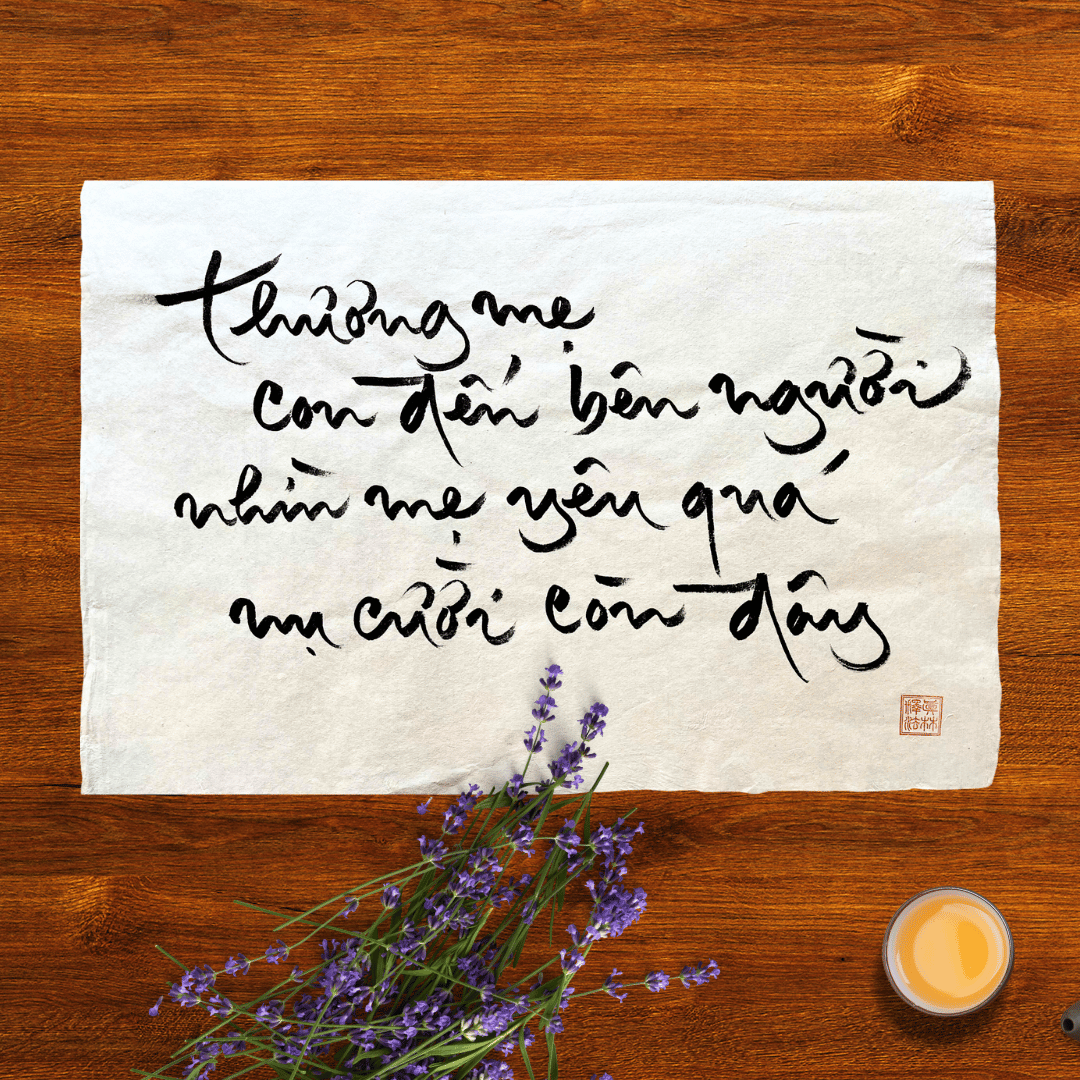 thương mẹ
con đến bên người
nhìn mẹ yêu quá
nụ cười còn đây